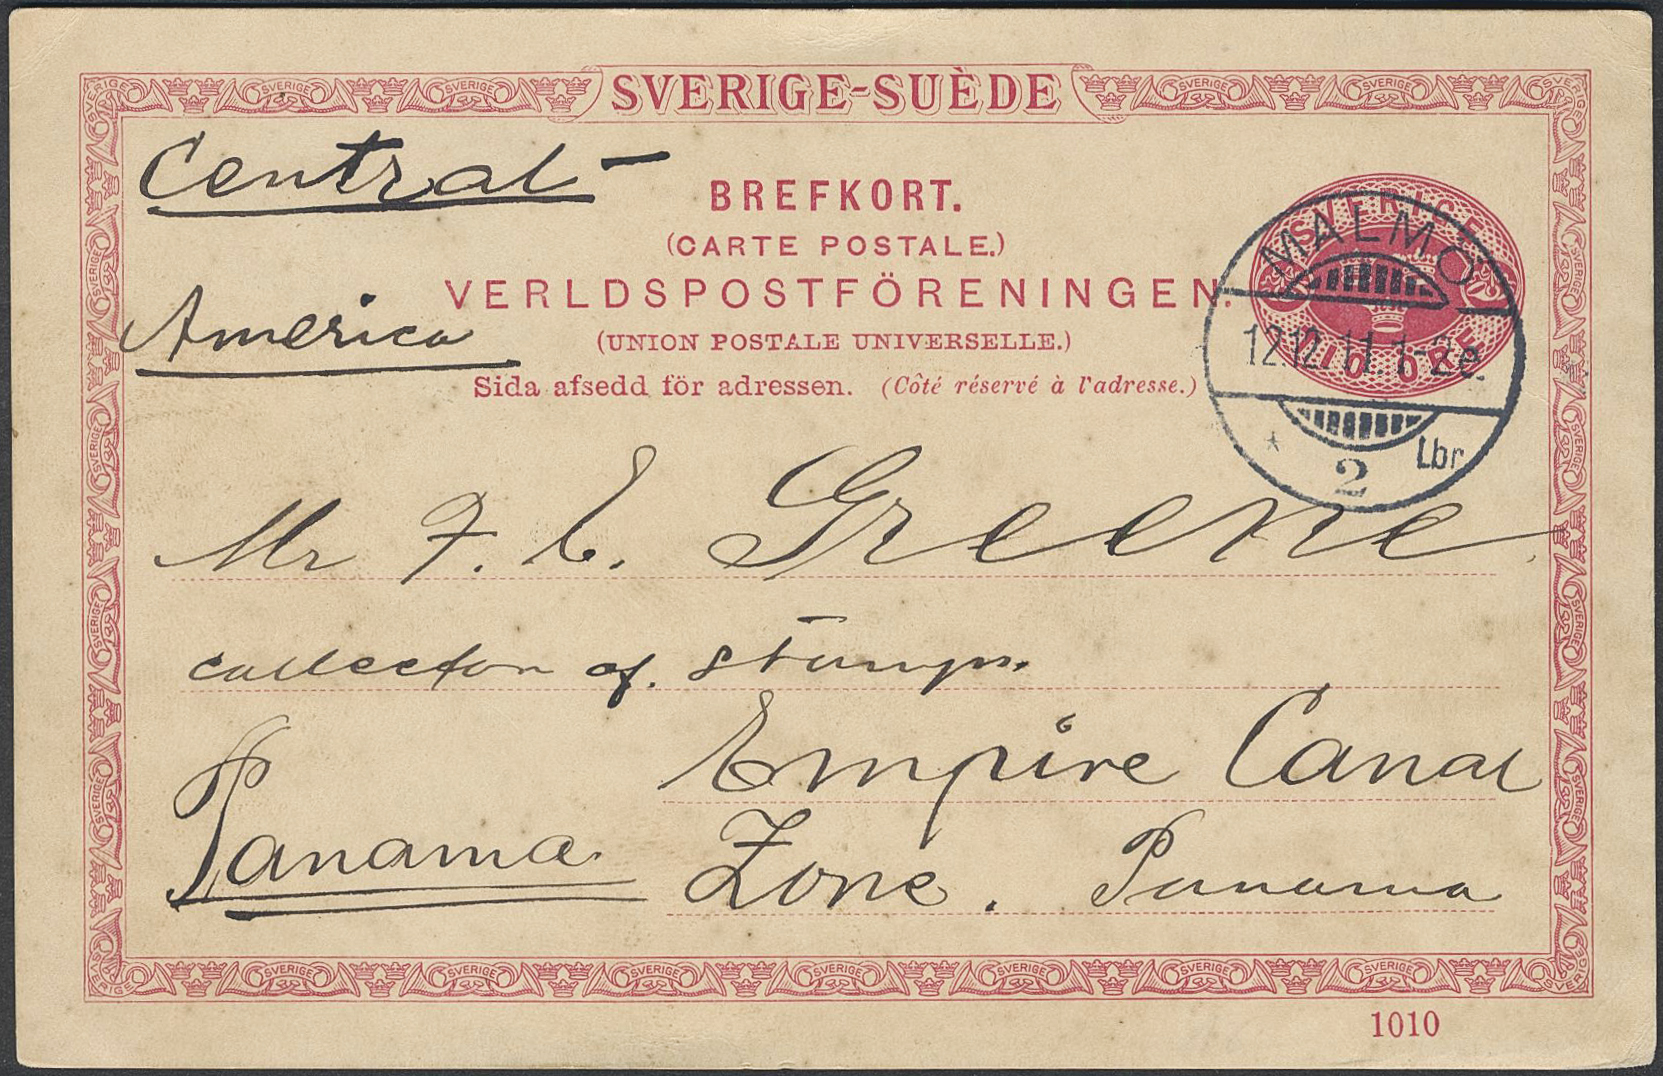 SVERIGE-SUÈDE
Central-
America
BREFKORT.
(CARTE POSTALE.)
VERLDSPOSTFÖRENINGEN.
(UNION POSTALE UNIVERSELLE.)
Sida afsedd för adressen. (Côté réservé à l'adresse.)
SVERIGE
TIO ÖRE
MALMÖ
12.12.11.1-2e.
* 2 Lbr
Mr F. E. Greene
collector of. stamps.
Empire Canal
Panama
Zone. Panama
1010